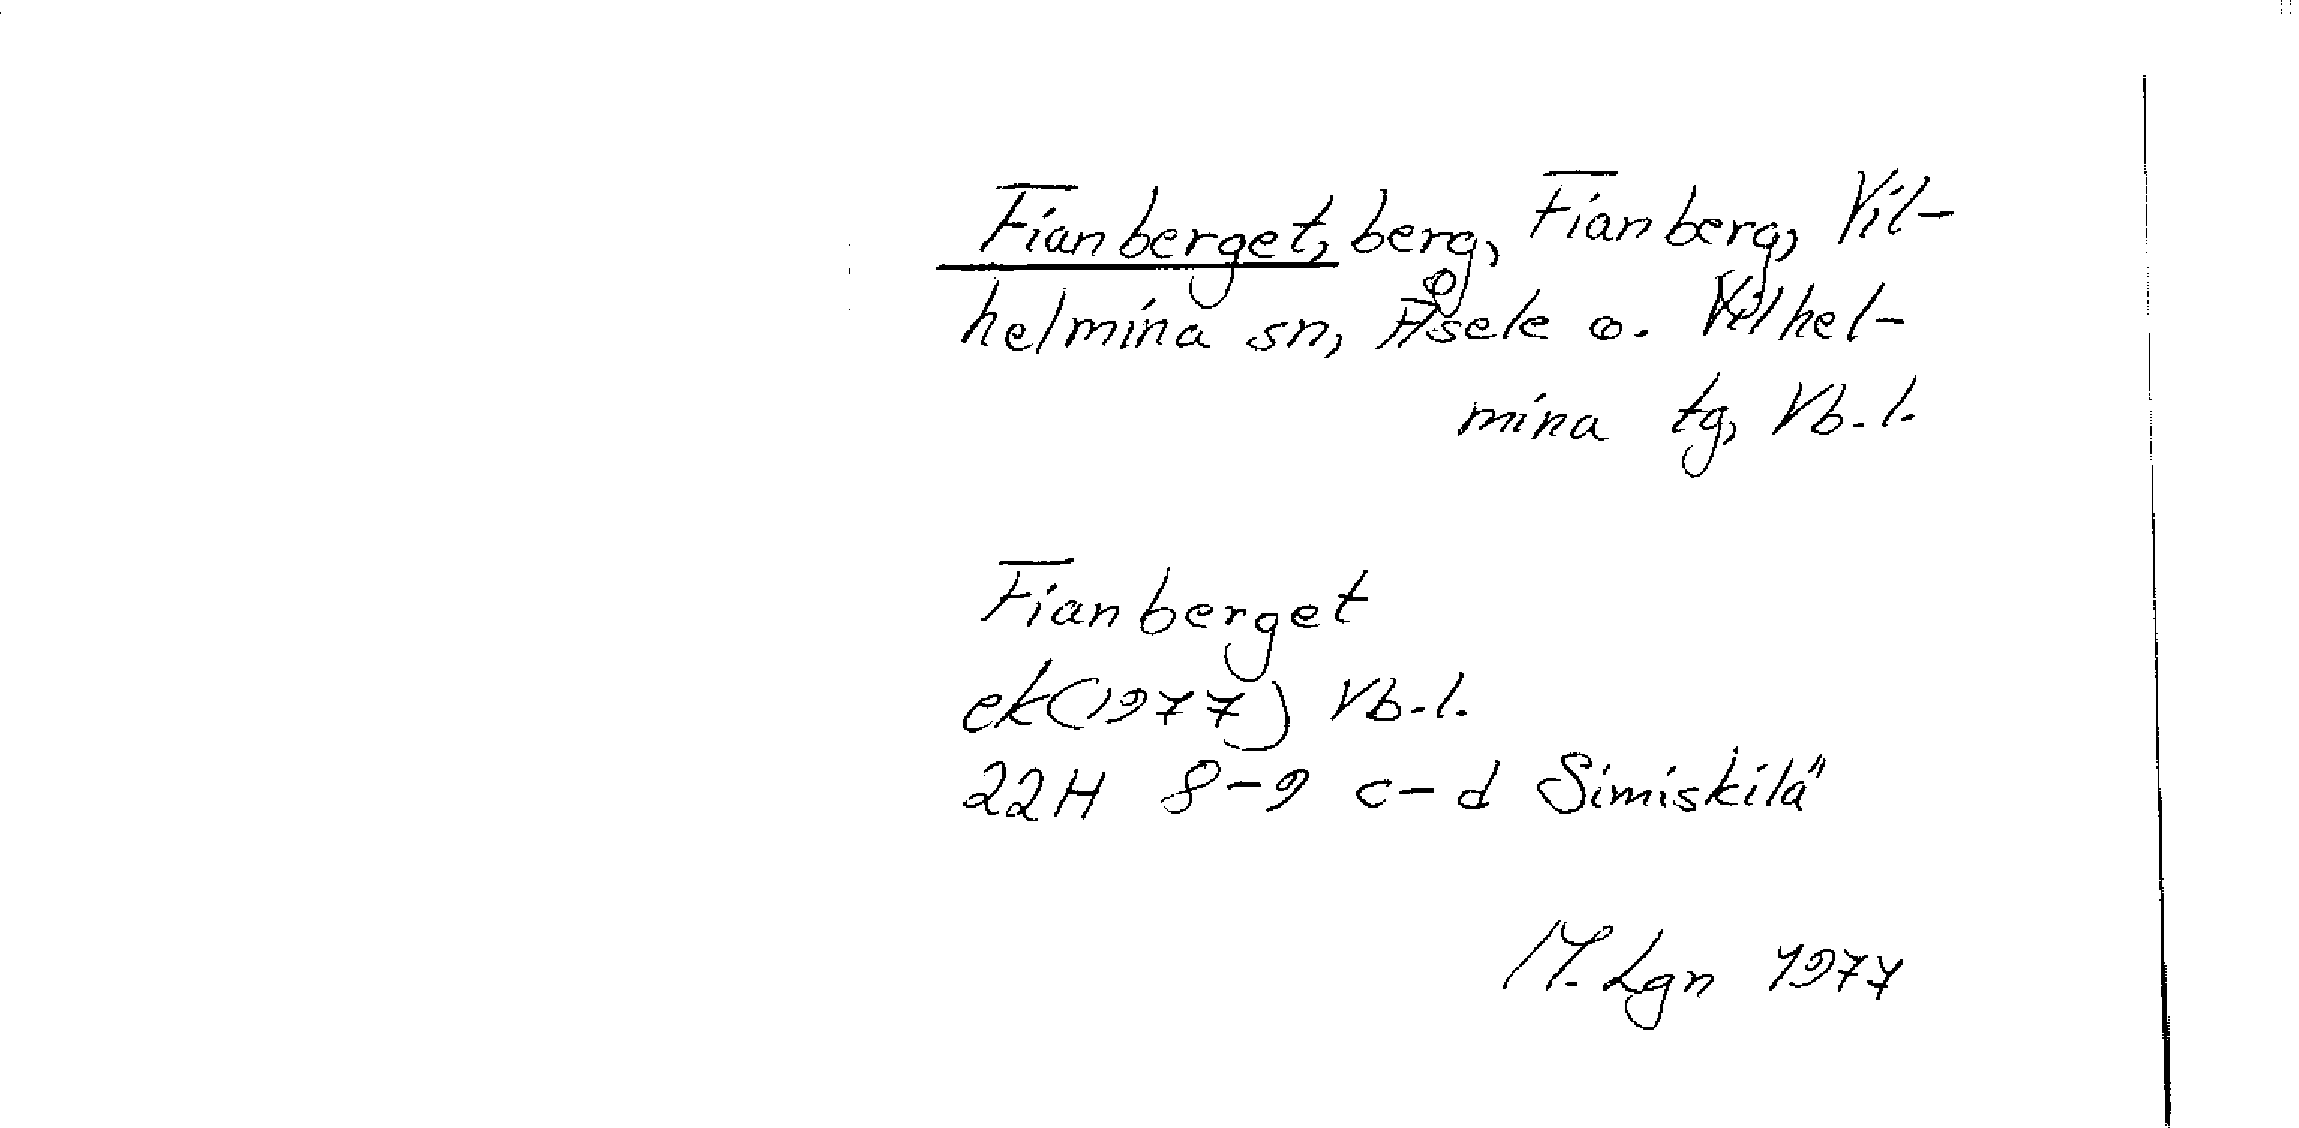 Fianberget, berg, Fianberg, Vil-
helmina sn, Åsele o. Vilhel-
mina tg, Vb. l.
Fianberget
ek (1977) Vb. l.
22H 8-9 c-d Simiskilä
M. Lgn 1977